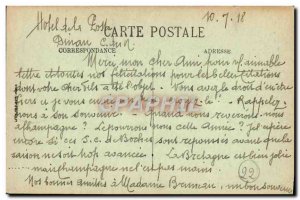 Hotel de la Poste
10.7.18
CARTE POSTALE
Dinan C. du N.
CORRESPONDANCE
ADRESSE
Merci mon cher Ami pour v/ aimable
lettre et toutes nos félicitations pour les belles citations
dont votre cher fils a été l'objet. Vous avez le droit d'en être
fiers et je vous Rappelez
à son souvenir. Quand nous reverrons-nous
champagne? Le pourrons-nous cette Année? J'ai
encore de ces S.O. de Boches sont repoussés avant que la
saison ne soit trop avancée. La Bretagne est bien jolie
mais champagne est mieux
Nos bonnes amitiés à Madame bon souvenir
22